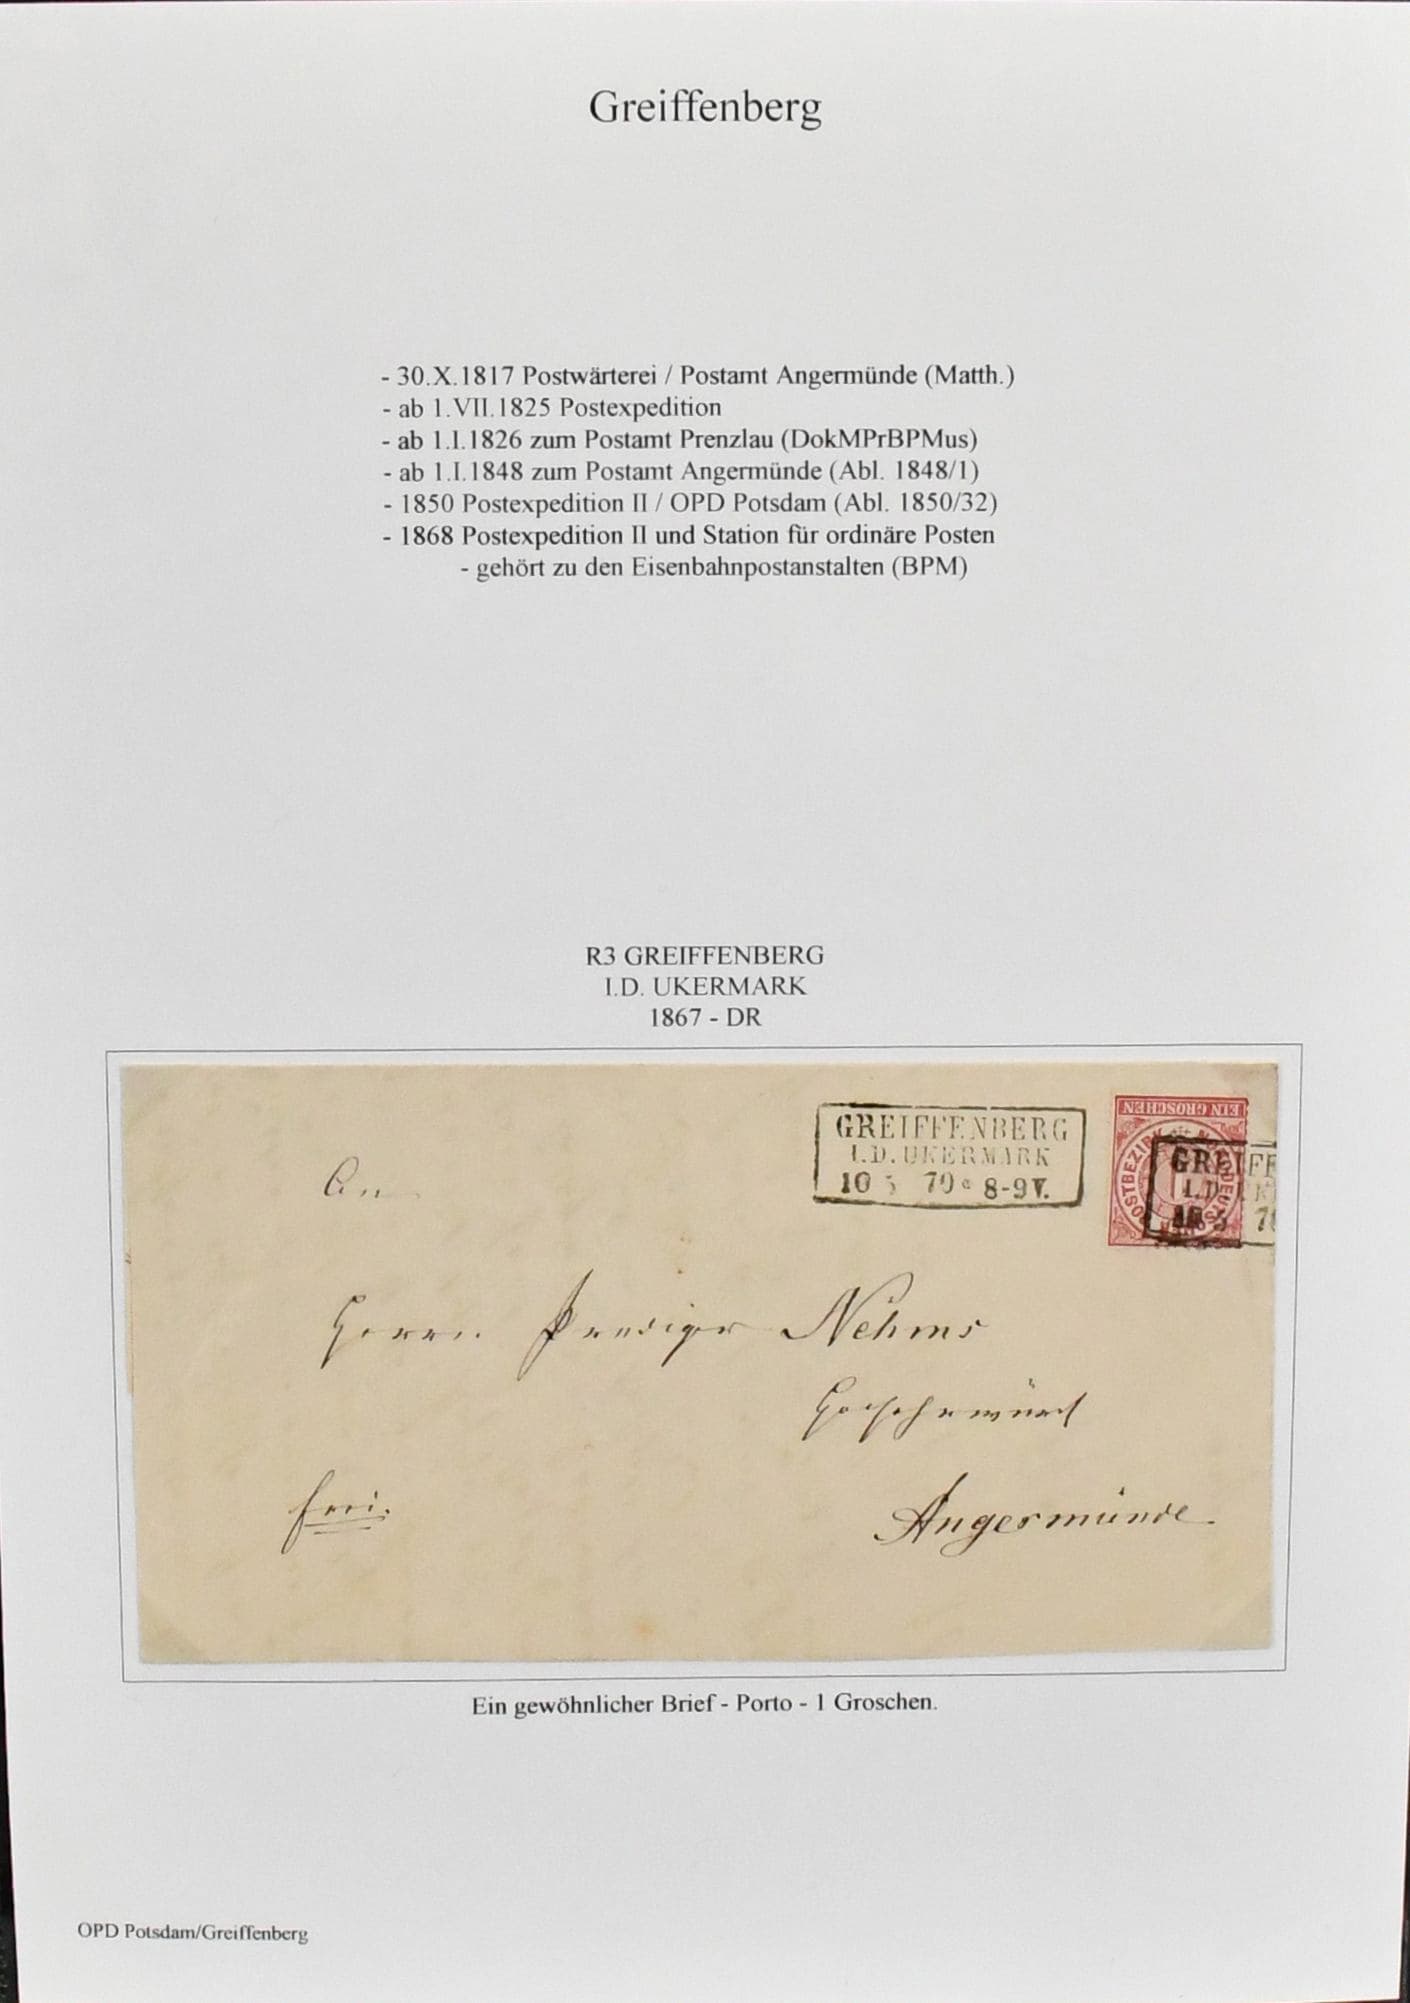 Greiffenberg
- 30.X.1817 Postwärterei / Postamt Angermünde (Matth.)
- ab 1.VII.1825 Postexpedition
- ab 1.I.1826 zum Postamt Prenzlau (DokMPrBPMus)
- ab 1.I.1848 zum Postamt Angermünde (Abl. 1848/1)
- 1850 Postexpedition II / OPD Potsdam (Abl. 1850/32)
- 1868 Postexpedition II und Station für ordinäre Posten
- gehört zu den Eisenbahnpostanstalten (BPM)
R3 GREIFFENBERG
I.D. UKERMARK
1867 - DR
GREIFFENBERG
I.D. UKERMARK
10 5 70 8-9 V.
EIN GROSCHEN
NORDDEUTSCHER POSTBEZIRK
GREIFF
I.D. UK
10 5 70
An
Herrn Prediger Nehms
Hochehrwürd
frei.
Angermünde
Ein gewöhnlicher Brief - Porto - 1 Groschen.
OPD Potsdam/Greiffenberg